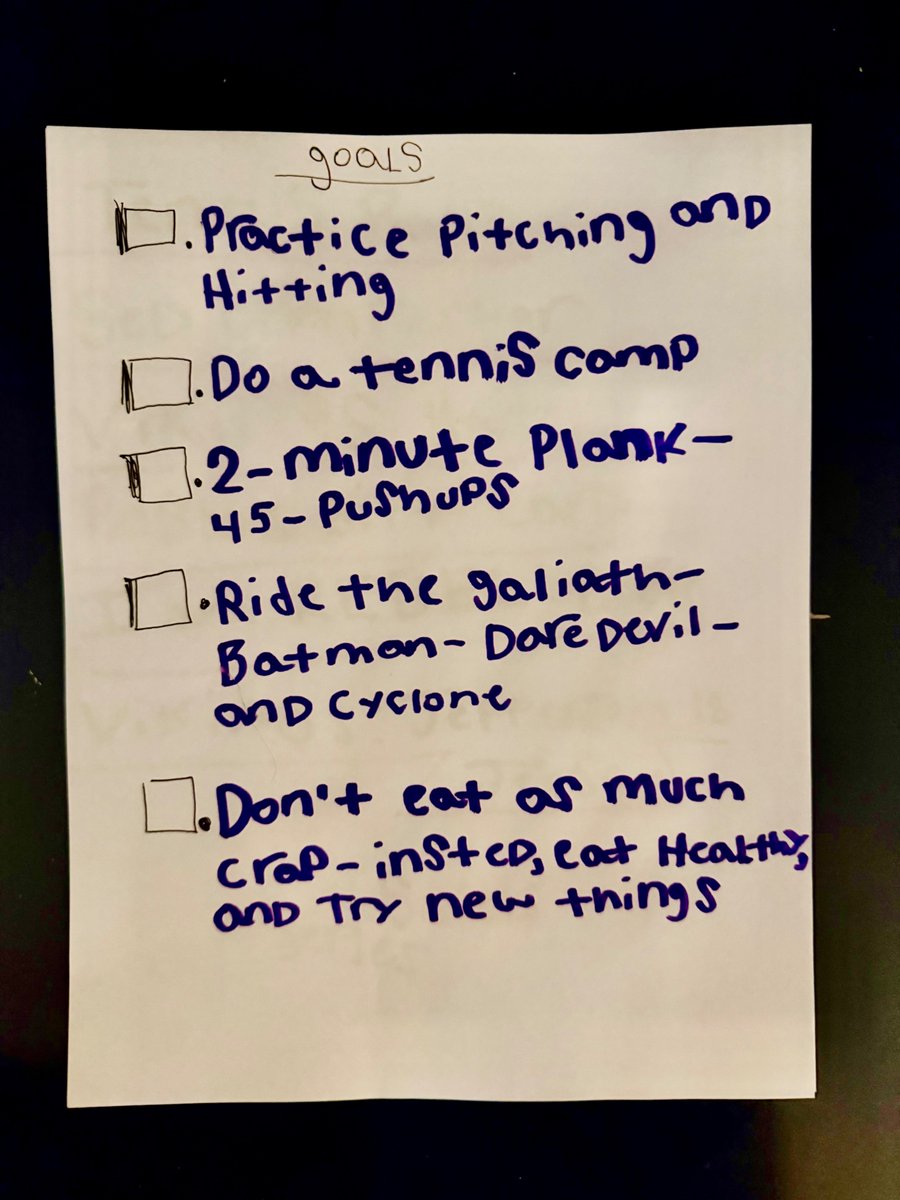 goals
. Practice Pitching and
Hitting
. Do a tennis camp
. 2-minute Plank-
45-Pushups
. Ride the galiath-
Batman- Dare Devil-
and Cyclone
. Don't eat as much
crap- insted, eat Healthy,
and Try new things